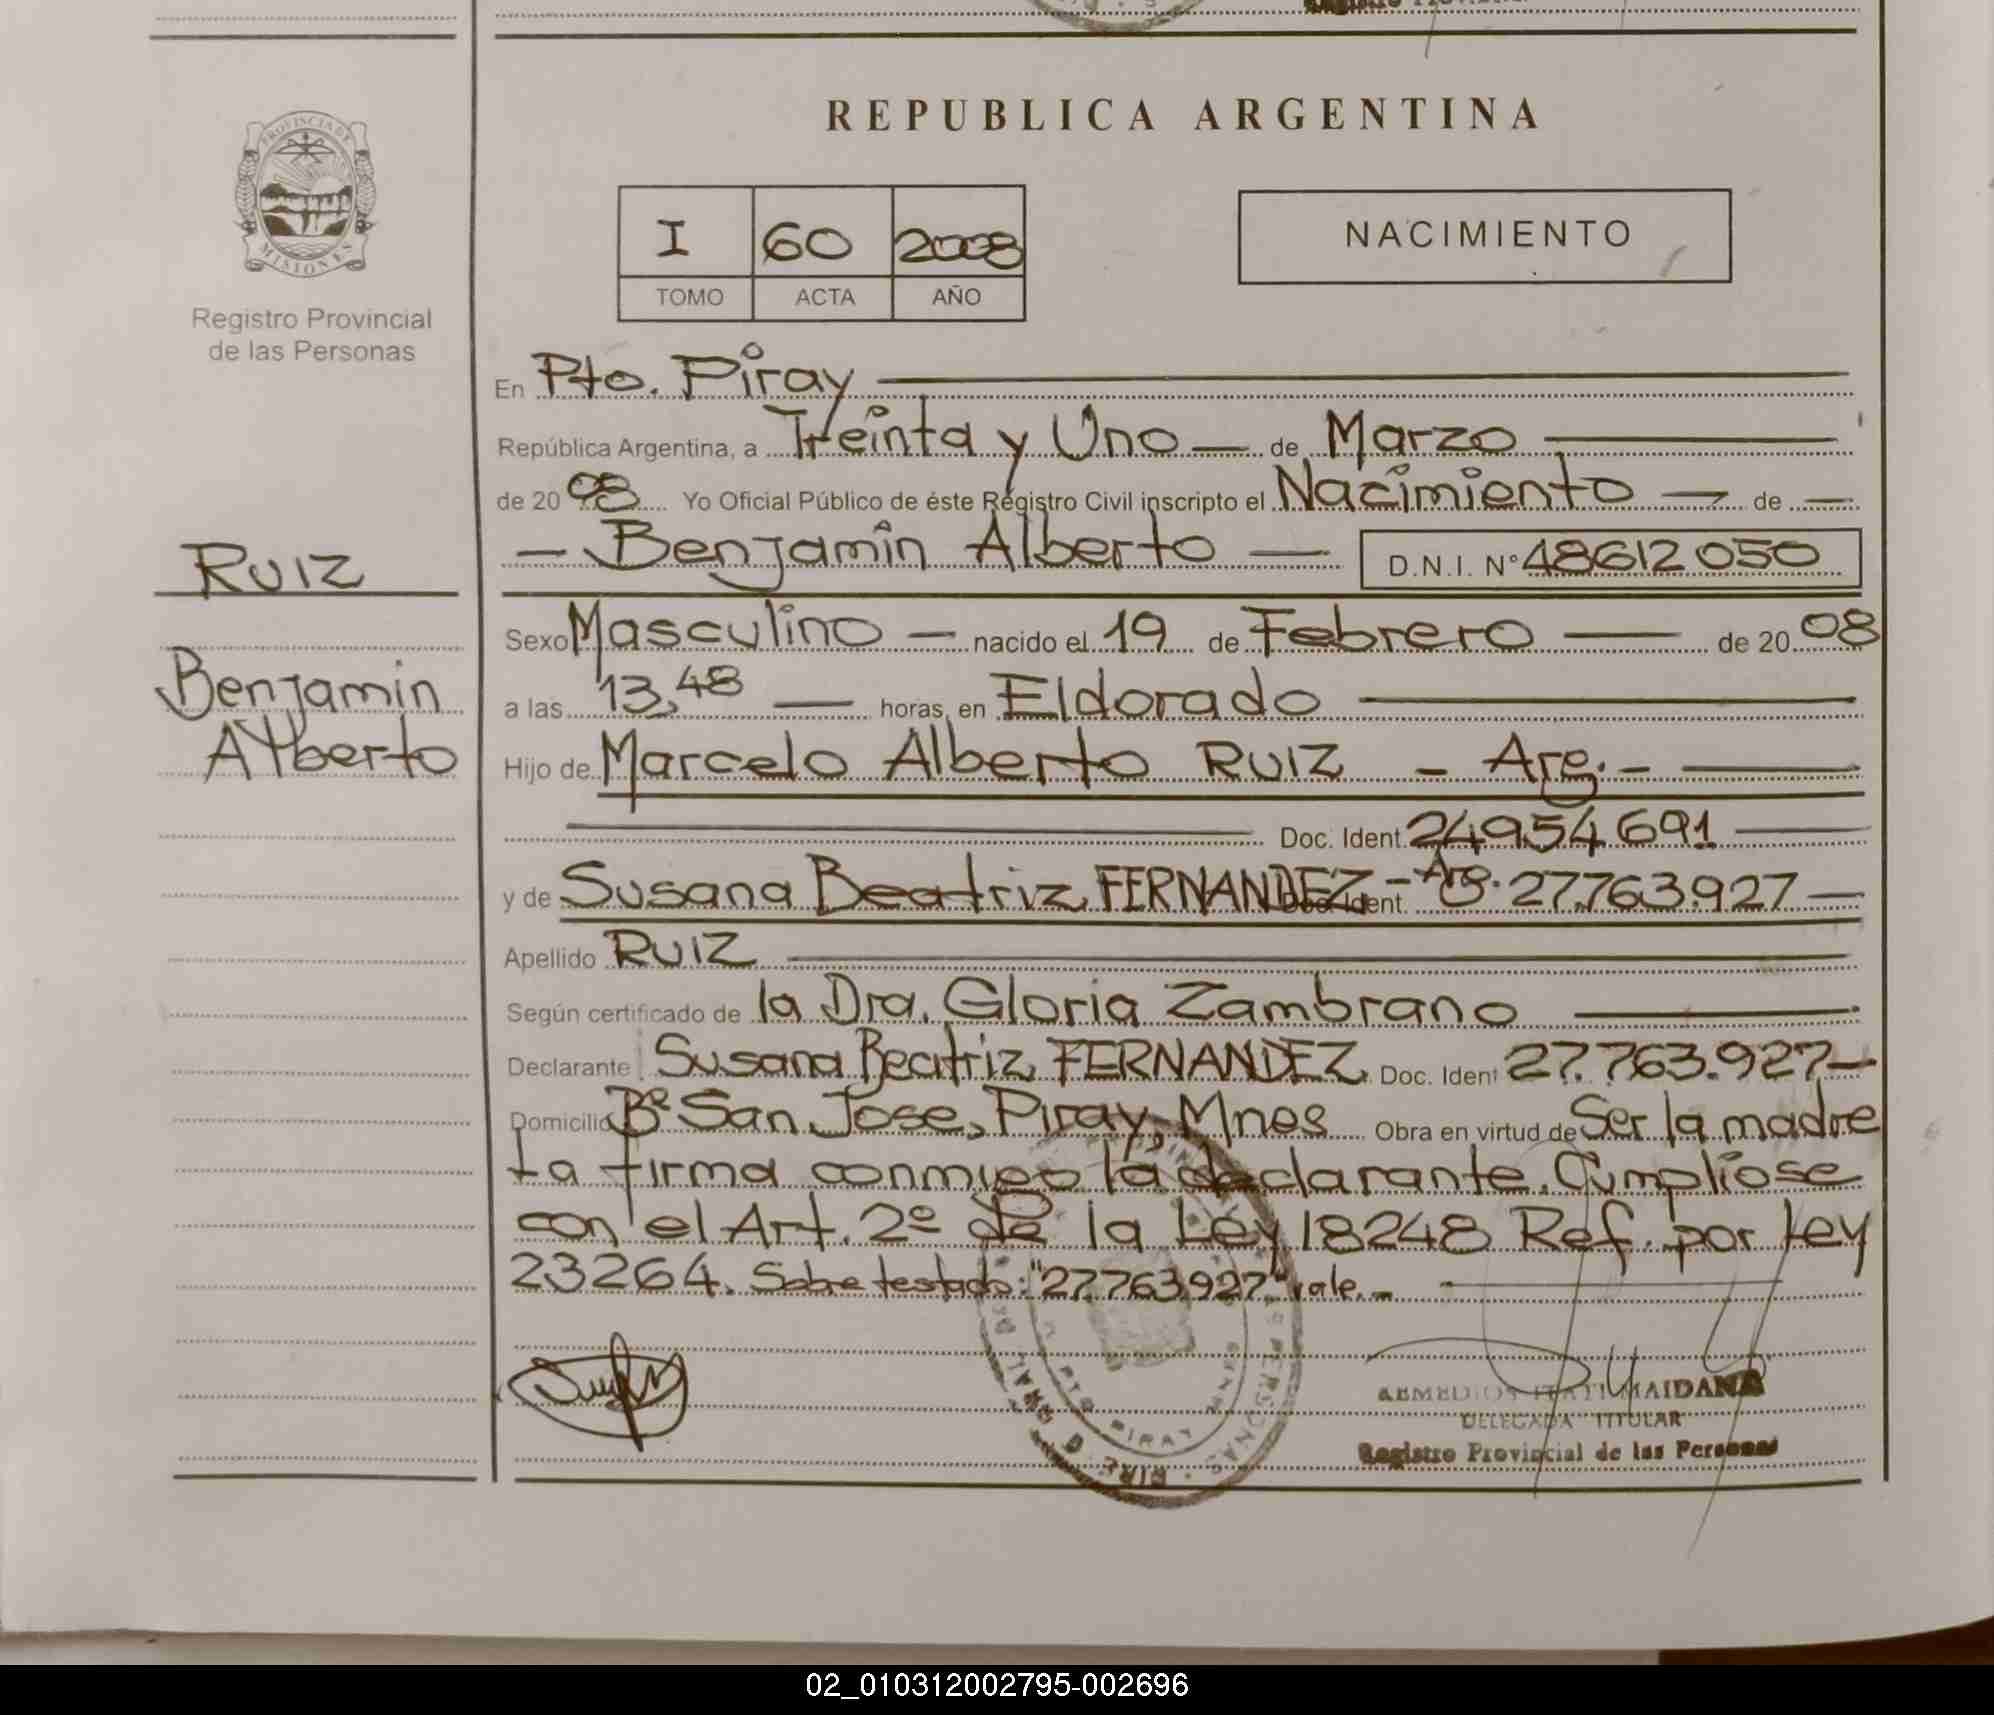 PROVINCIA DE
MISIONES
Registro Provincial
de las Personas
REPUBLICA ARGENTINA
I 60 2008
TOMO ACTA AÑO
NACIMIENTO
En Pto. Piray
República Argentina, a Treinta y Uno — de Marzo
de 20 08 Yo Oficial Público de éste Registro Civil inscripto el Nacimiento — de —
— Benjamín Alberto — D.N.I. N° 48612050
Ruiz
Benjamin
Alberto
Sexo Masculino — nacido el 19 de Febrero — de 20 08
a las 13,48 — horas, en Eldorado
Hijo de Marcelo Alberto RUIZ - Arg. -
Doc. Ident. 24954691
y de Susana Beatriz FERNANDEZ - Arg. Doc. Ident. 27.763.927 —
Apellido RUIZ
Según certificado de la Dra. Gloria Zambrano
Declarante Susana Beatriz FERNANDEZ Doc. Ident 27.763.927-
Domicilio Bº San Jose, Piray, Mnes Obra en virtud de Ser la madre
La firma conmigo la declarante. Cumpliose
con el Art. 2º de la Ley 18248 Ref. por Ley
23264. Sobre testado: "27.763.927" vale. -
PTO PIRAY
REMEDIOS ITATI MAIDANA
DELEGADA TITULAR
Registro Provincial de las Personas
02_010312002795-002696